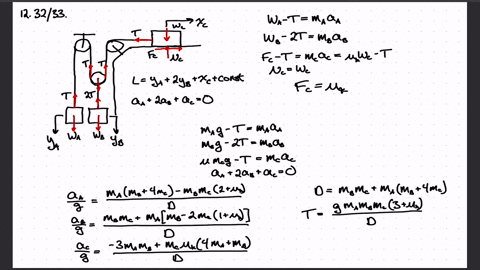 12.32/33.
W_C
x_C
T
F_C
N_C
T
T
T
2T
W_A
W_B
y_A
y_B
L = y_A + 2y_B + x_C + const
a_A + 2a_B + a_C = 0
W_A - T = m_A a_A
W_B - 2T = m_B a_B
F_C - T = m_C a_C = μ_k W_C - T
N_C = W_C
F_C = μ_k
m_A g - T = m_A a_A
m_B g - 2T = m_B a_B
μ m_C g - T = m_C a_C
a_A + 2a_B + a_C = 0
a_A/g = (m_A(m_B + 4m_C) - m_B m_C(2 + μ_k))/D
a_B/g = (m_B m_C + m_A[m_B - 2m_C(1 + μ_k)])/D
a_C/g = (-3m_A m_B + m_C μ_k(4m_A + m_B))/D
D = m_B m_C + m_A(m_B + 4m_C)
T = (g m_A m_B m_C(3 + μ_k))/D